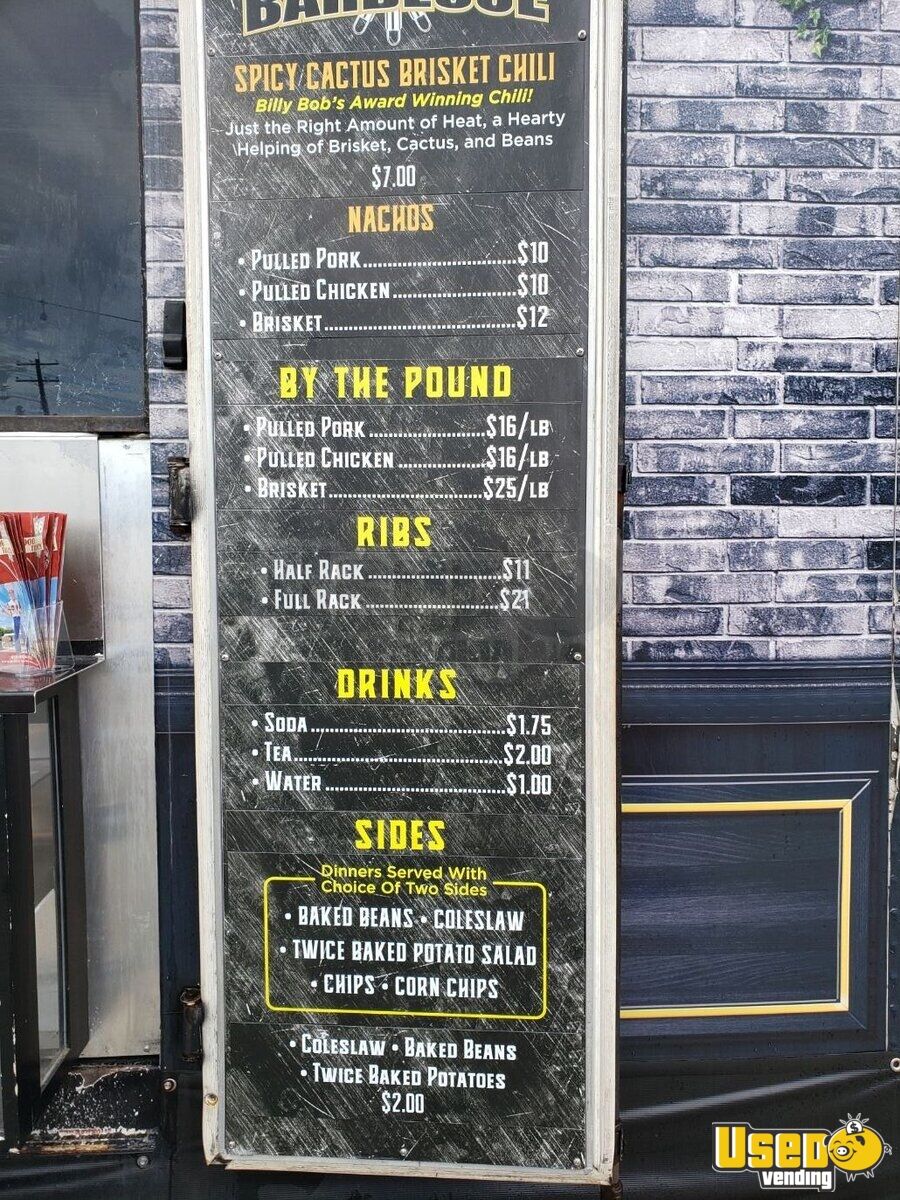 BARBECUE
SPICY CACTUS BRISKET CHILI
Billy Bob's Award Winning Chili!
Just the Right Amount of Heat, a Hearty
Helping of Brisket, Cactus, and Beans
$7.00
NACHOS
• PULLED PORK..............................$10
• PULLED CHICKEN........................$10
• BRISKET.....................................$12
BY THE POUND
• PULLED PORK......................$16/LB
• PULLED CHICKEN................$16/LB
• BRISKET.............................$25/LB
RIBS
• HALF RACK.........................$11
• FULL RACK.........................$21
DRINKS
• SODA.....................................$1.75
• TEA.......................................$2.00
• WATER...................................$1.00
SIDES
Dinners Served With
Choice Of Two Sides
• BAKED BEANS • COLESLAW
• TWICE BAKED POTATO SALAD
• CHIPS • CORN CHIPS
• COLESLAW • BAKED BEANS
• TWICE BAKED POTATOES
$2.00
USED
vending